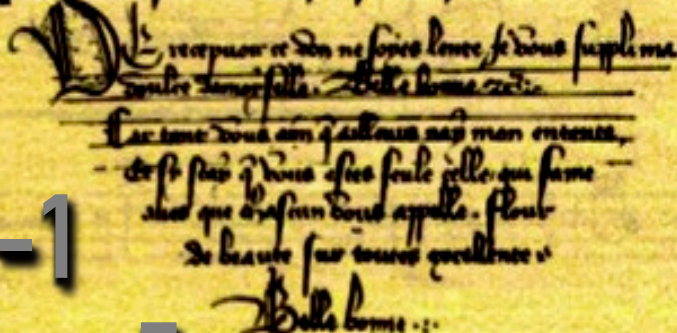 De recepvoir ce don ne soyes lente, Je vous suppli ma
doulce damoyselle. Belle bonne etc.
Car tant vous aim q̃ aillours nay mon entente,
Et sy scay q̃ vous estes seule celle qui fame
aves que chascun vous appelle. flour
de beaute sur toutes excellente
Belle bonne .:.
-1